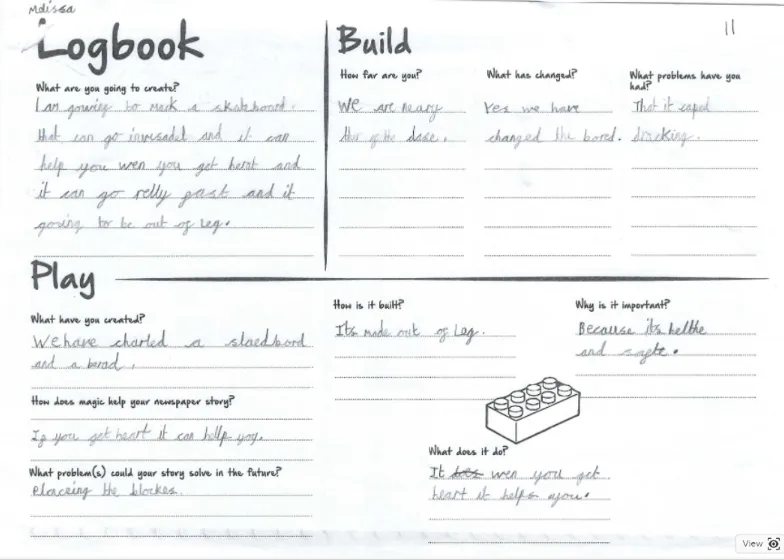 Melissa
Logbook
What are you going to create?
I am gowing to mack a skateboard.
that can go invesadel and it can
help you wen you get herat and
it can go relly fast and it
gowing to be out of Leg.
Build
11
How far are you?
We are neary
ther of the dase.
What has changed?
Yes we have
changed the bored.
What problems have you
had?
That it caped
dracking.
Play
What have you created?
We have charted a slaedbord
and a berad.
How does magic help your newspaper story?
If you get heart it can hellp yoy.
What problem(s) could your story solve in the future?
Placeing the blockes.
How is it built?
It's made out of Leg.
Why is it important?
Because it's helthe
and safte.
What does it do?
It does wen you get
heart it helps you.
View